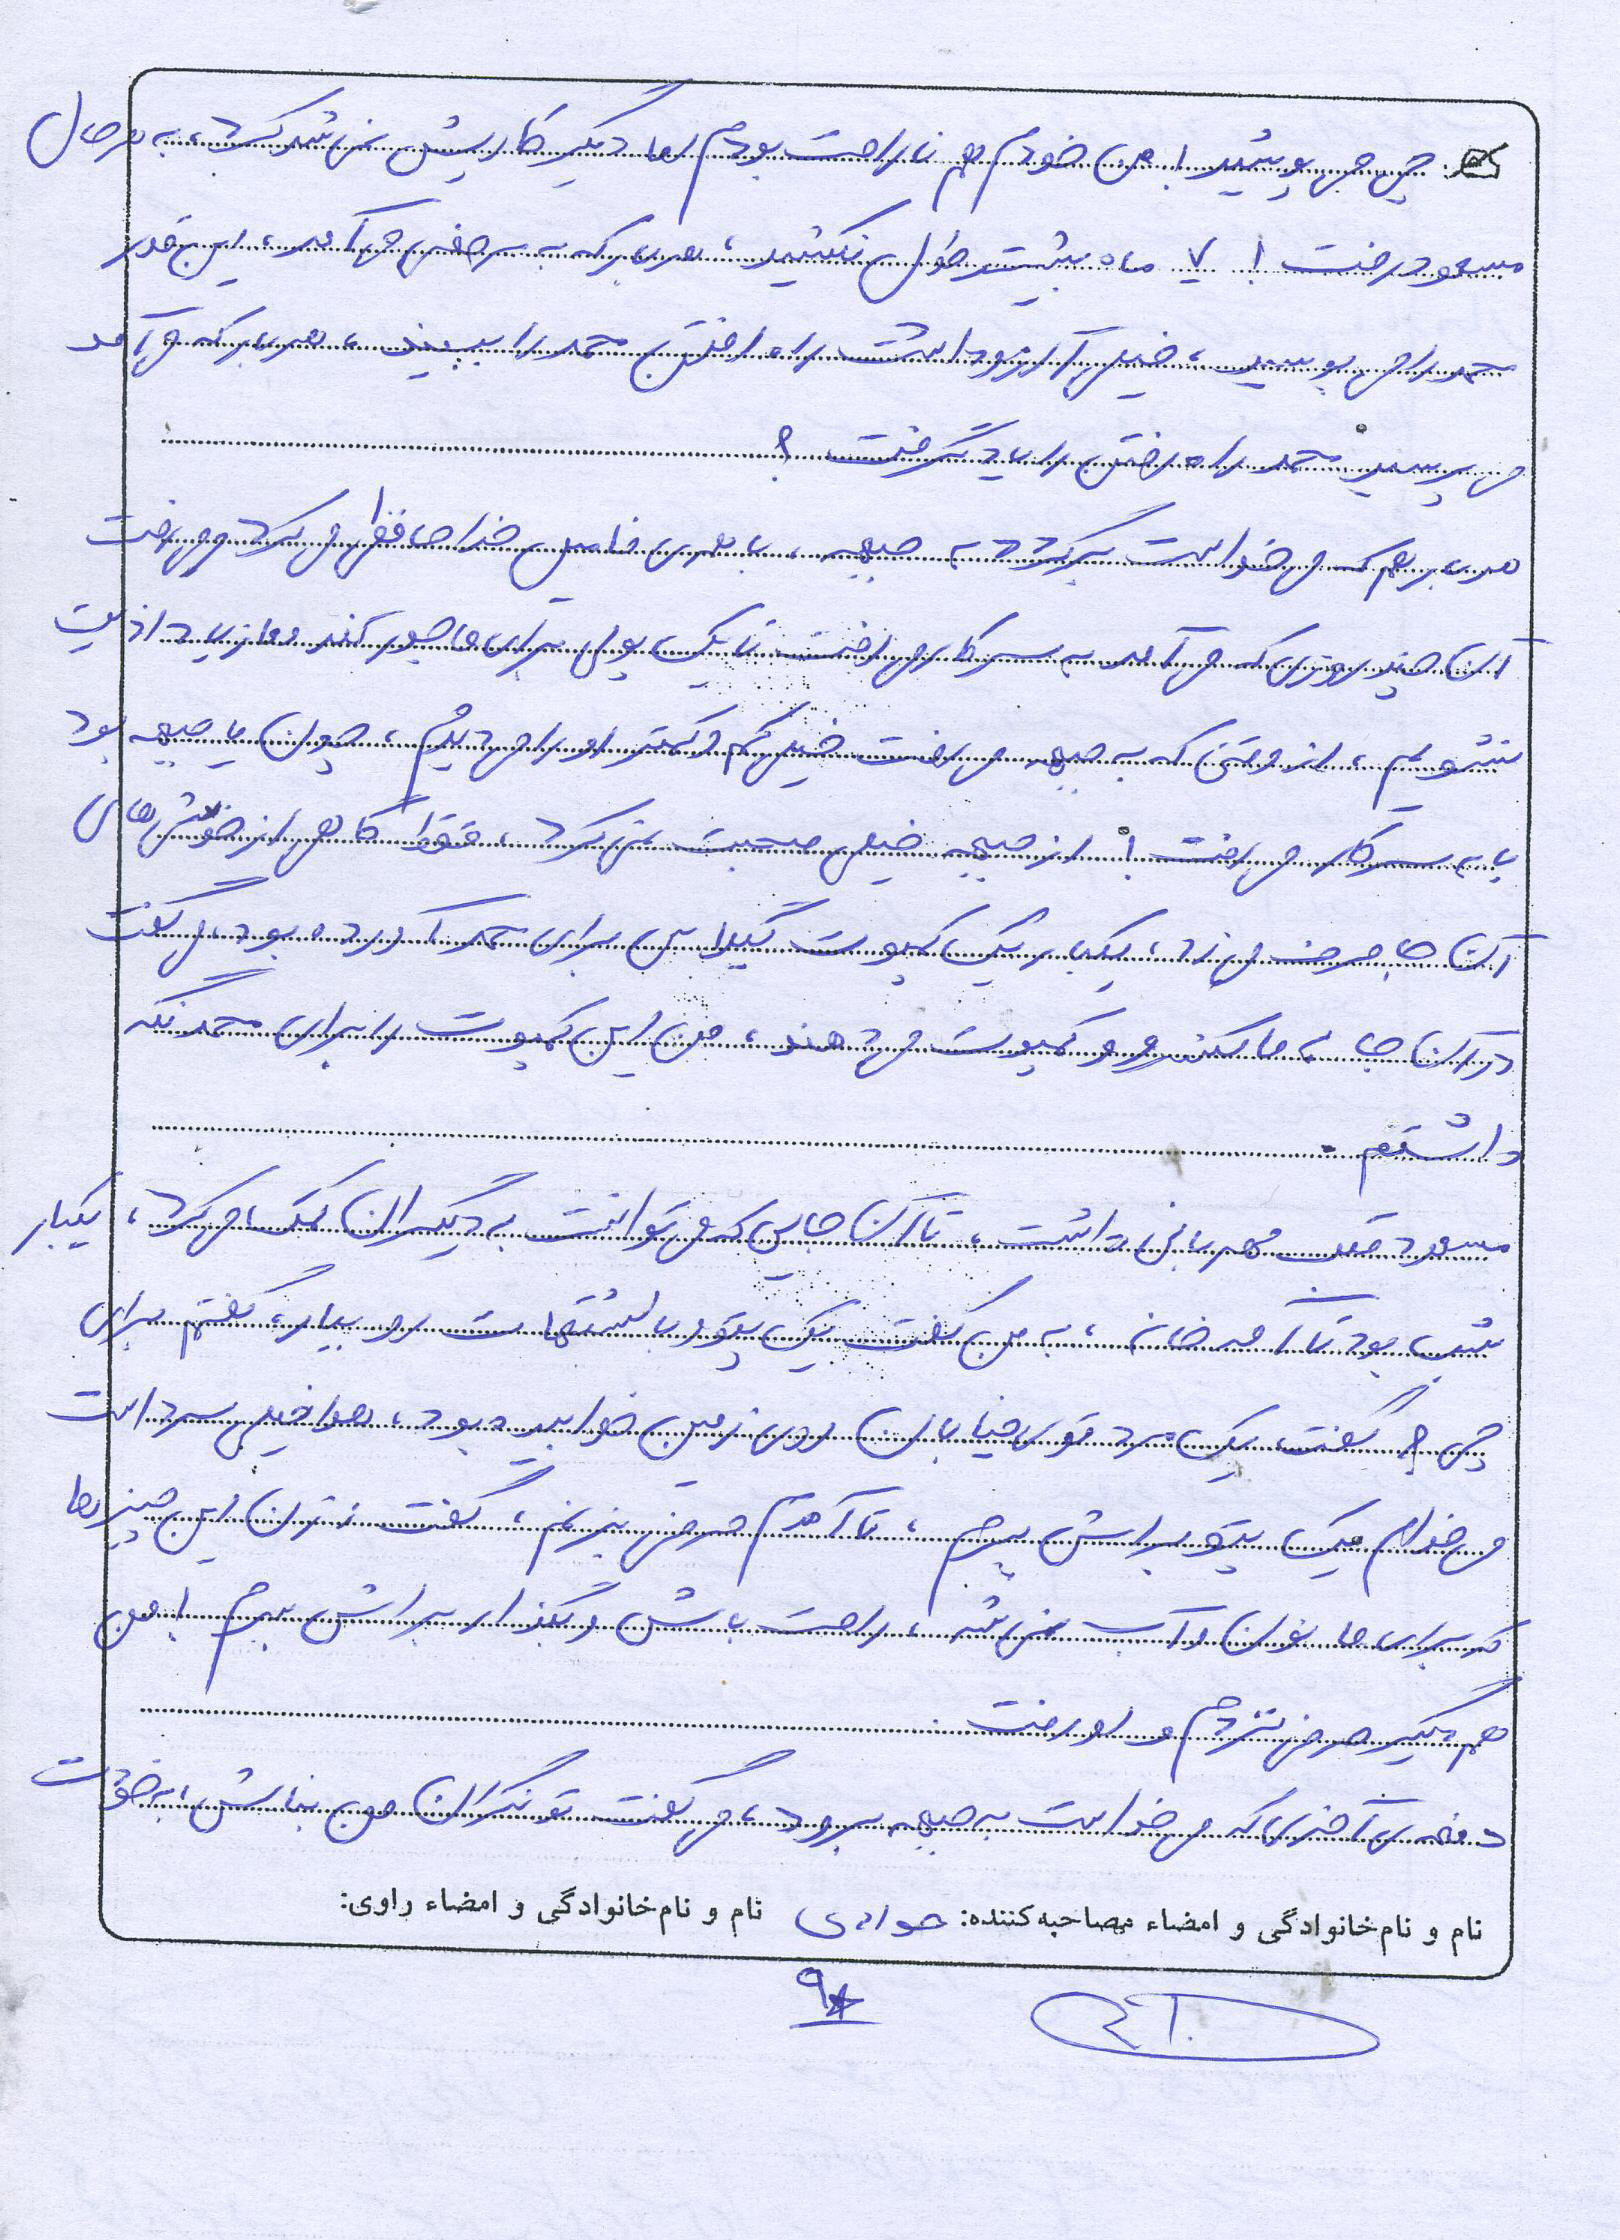 چی می پوشید! من خودم هم ناراحت بودم اما دیگر کاریش نمی شد کرد، به هر حال
مسعود رفت! ۷ ماه بیشتر طول نکشید، هر بار که به مرخصی می آمد، این قدر
محمد را می بوسید، خیلی آرزو داشت راه رفتن محمد را ببیند، هر بار که می آمد
می پرسید محمد راه رفتن را یاد گرفت؟
هر بار هم که می خواست برگردد به جبهه، با همه ی فامیل خداحافظی می کرد و می رفت
آن چند روزی که می آمد به سر کار می رفت تا یک پولی برای ما جور کند و ما زیاد اذیت
نشویم، از وقتی که به جبهه می رفت خیلی کم و کمتر او را می دیدم، چون یا جبهه بود
یا به سر کار می رفت! از جبهه خیلی صحبت نمی کرد، فقط گاهی از خوشی های
آن جا حرف می زد، یکبار یک کمپوت گیلاس برای محمد آورده بود، می گفت
در آن جا به ما کنسرو و کمپوت می دهند، من این کمپوت را برای محمد نگه
داشتم.
مسعود قلب مهربانی داشت، تا آن جایی که می توانست به دیگران کمک می کرد، یکبار
شب بود تا آمد خانه، به من گفت یک پتو و بالشتهات رو بیار، گفتم برای
چی؟ گفت یک مرد توی خیابان روی زمین خوابیده بود، هوا خیلی سرد است
می خوام یک پتو براش ببرم، تا آمدم حرفی بزنم، گفت نترس این چیزها
که برای ما نون و آب نمی شه، راحت باش و بگذار براش ببرم! من
هم دیگر حرفی نزدم و او رفت.
دفعه ی آخری که می خواست به جبهه برود، می گفت تو نگران من نباش، به خودت
نام و نام خانوادگی و امضاء مصاحبه کننده: جوادی نام و نام خانوادگی و امضاء راوی: